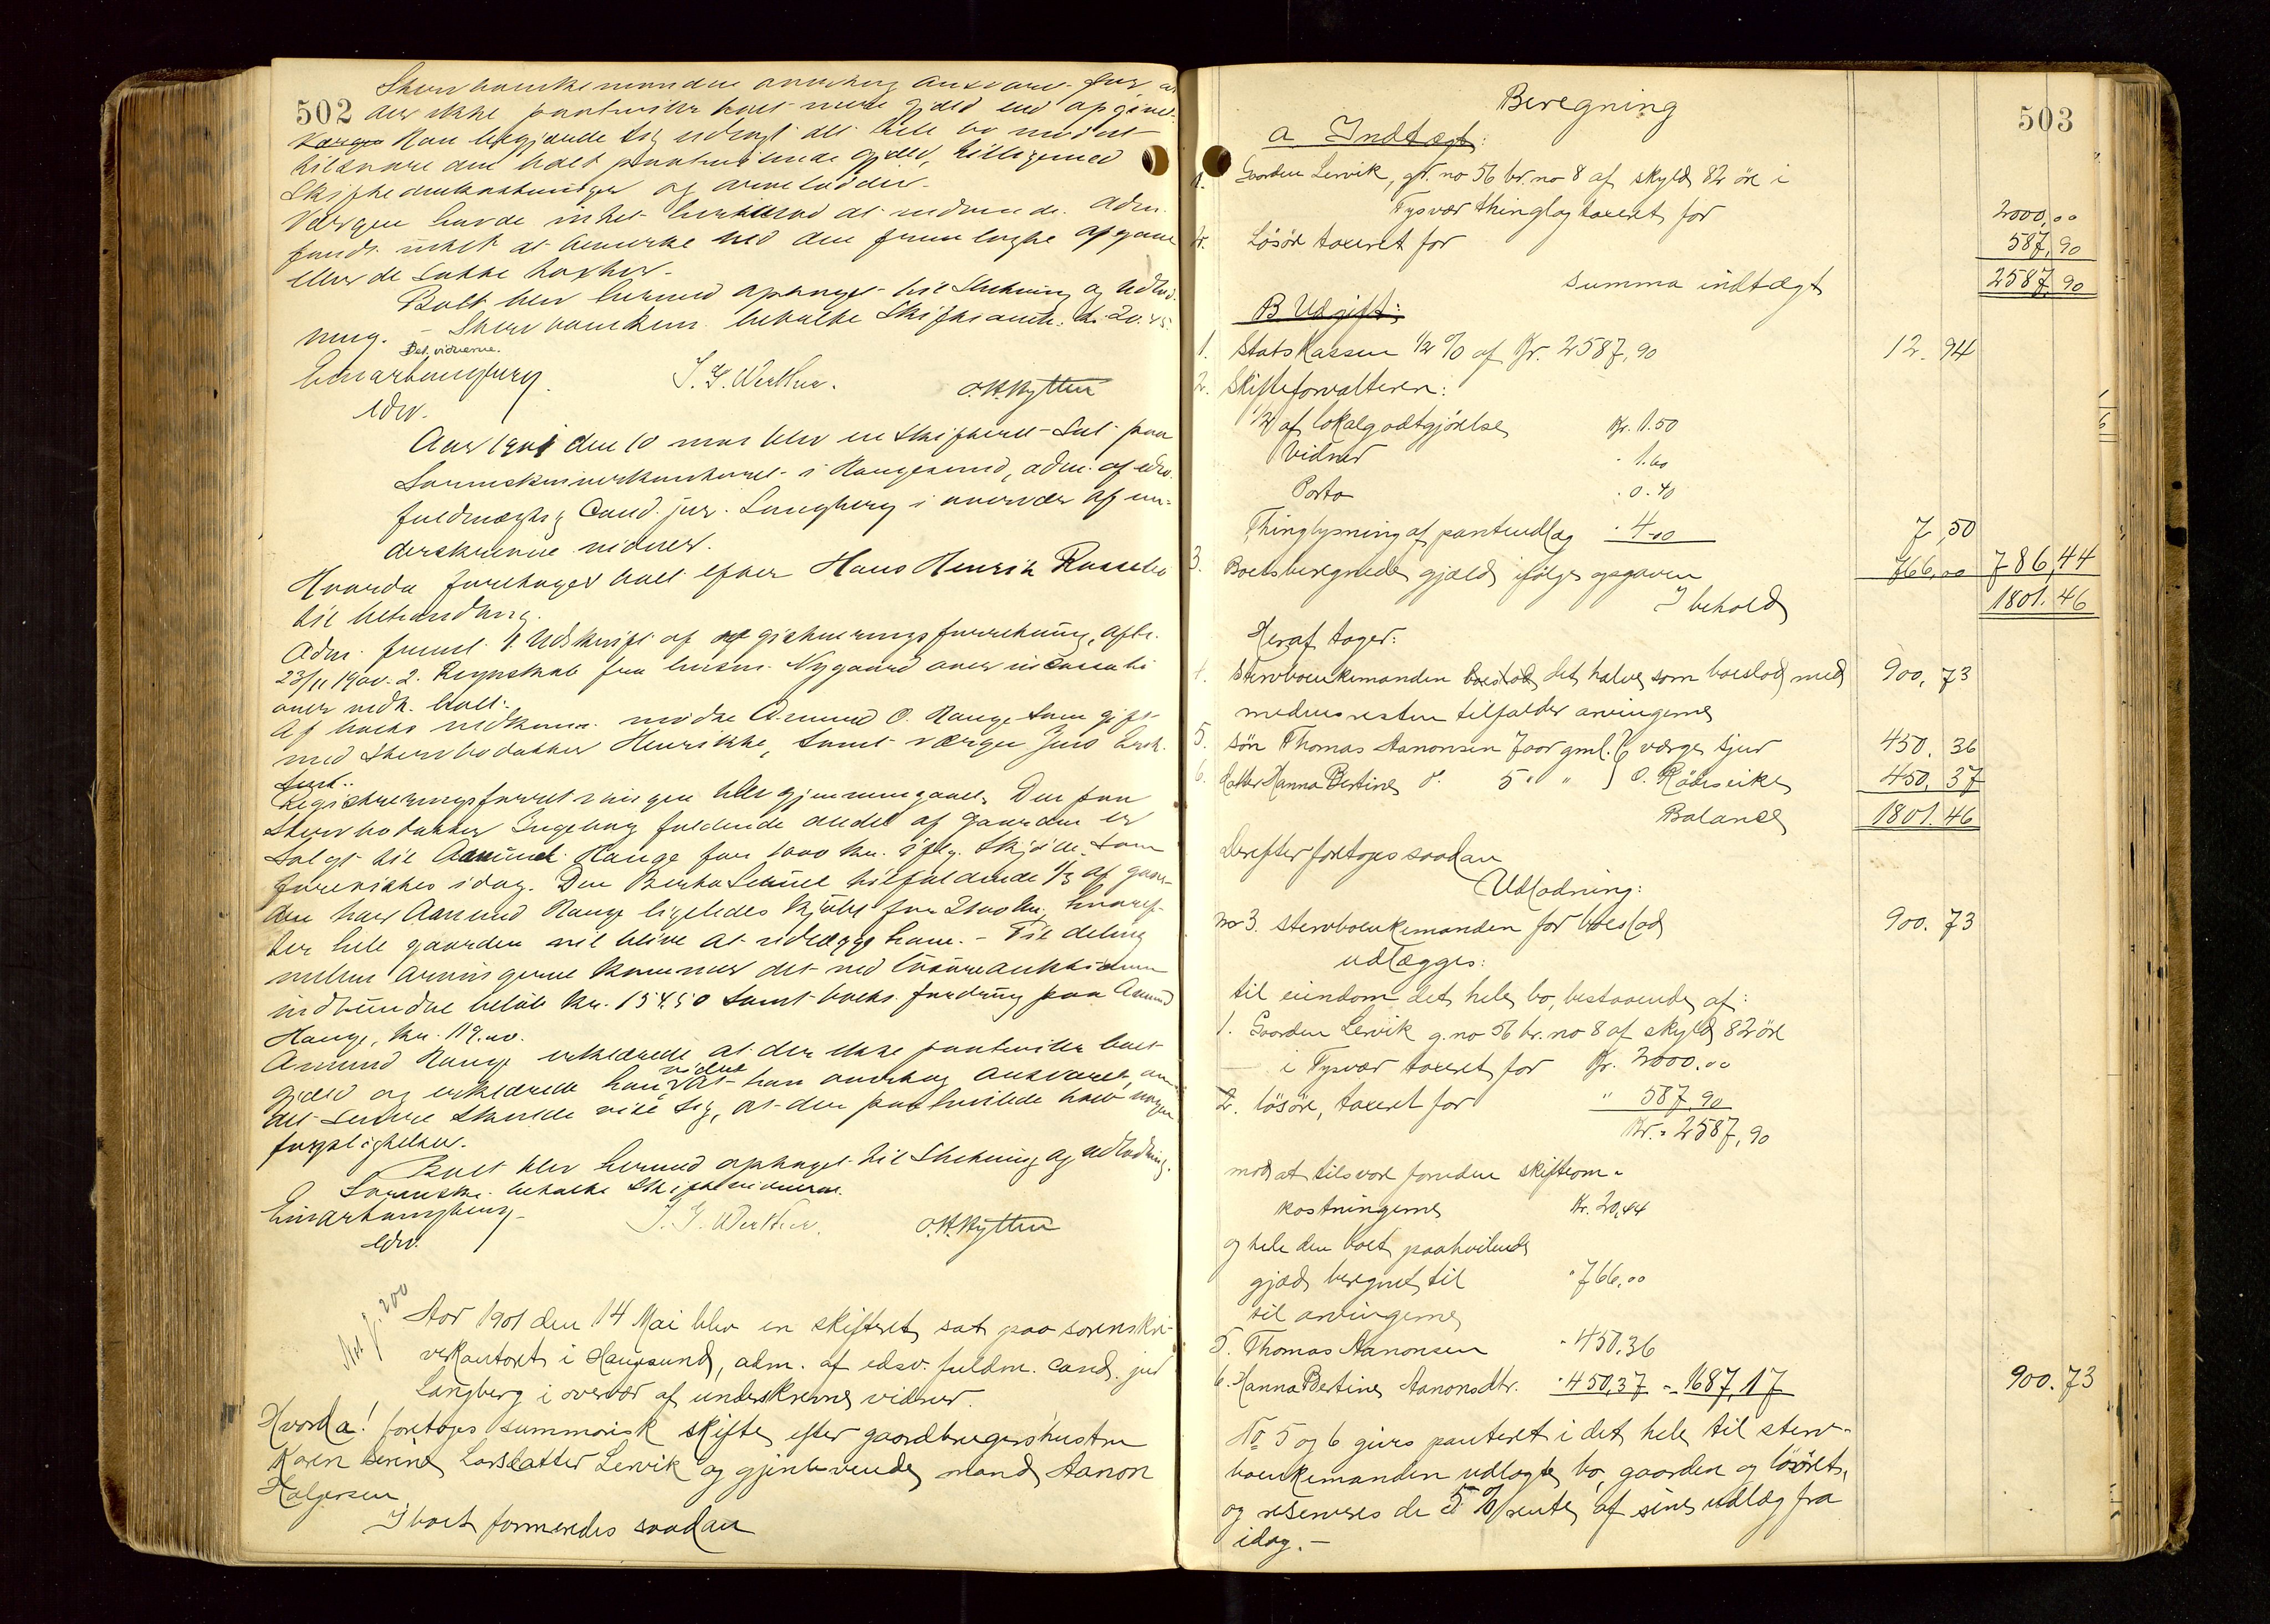 502
der ikke paahviler boet mere gjeld end opgivet.
Han begjærede sig udlagt det hele bo mod at
tilsvare den boet paahvilende gjeld, tilligemed
Skifteomkostninger og arvelodder.
Værgen havde intet herimod at indvende. Adm.
fandt intet at bemerke ved den fremlagte opgave
eller de satte taxter.
Boet blev herved optaget til Slutning og Udlod-
ning. — Stervboenkem. betalte Skifteomk. Kr. 20.45.
Bet. vidnerne.
Einar Langberg.
edsv.
I. G. Werther.
O. K. Kytten
Aar 1901 den 10 mai blev en Skifteret sat paa
Sorenskriverkontoret i Haugesund, adm. af edsv.
fuldmægtig Cand. jur. Langberg i overvær af un-
derskrevne vidner.
Hvorda foretoges boet efter Hans Henrik
til behandling.
Adm. freml. 1. Udskrift af registreringsforretning, afh.
23/11 1900. 2. Regnskab fra lensm. Nygaard over incassation
over vedk. boet.
Af boets vedkomm. mødte Amund O. Hauge som gift
med Sterbodatter Henrikke, samt værgen Jens
Registreringsforretningen blev gjennemgaaet. Den paa
Sterbodatter Ingeborg faldende andel af gaarden er
solgt til Amund Hauge for 1000 kr. iflg. Skjøde som
forevistes idag. Den Berta tilfaldende 1/3 af gaar-
den har Amund Hauge ligeledes kjøbt for 2100 kr, hvoref-
ter hele gaarden vil blive at udlægge ham. — Til deling
mellem arvingerne kommer det ved løsøreauktionen
indvundne beløb kr. 154.50 samt boets fordring paa Amund
Hauge, kr. 119.00.
Amund Hauge erklærede at der ikke paahviler boet
gjeld og erklærede han videre at han overtog ansvaret, om
det senere skulde vise sig, at der paahvilede boet nogen
forpligtelser.
Boet blev herved optaget til Slutning og udlodning.
Sorenskr. betalte Skiftevidnerne.
Einar Langberg
edsv.
I. G. Werther.
O. K. Kytten
Not f. 200
Aar 1901 den 14 Mai blev en skifteret sat paa sorenskri-
verkontoret i Haugesund, adm. af edsv. fuldm. cand. jur
Langberg i overvær af underskrevne vidner.
Hvorda! foretoges summarisk skifte efter gaardbrugerhustru
Karen Serine Larsdatter Lervik og gjenlevende mand Aanon
Holgersen
I boet formeredes saadan
503
Beregning
a. Indtægt:
1. Gaarden Lervik, gr. no 56 br. no 8 af skyld 82 øre i
Tysvær thinglag taxeret for 2000,00
2. Løsøre taxeret for 587,90
summa indtægt 2587,90
B. Udgift:
1. Statskassen 1/2 % af Kr. 2587,90 12.94
2. Skifteforvalteren:
1/2 af lokalgodtgjørelse Kr. 1.50
Vidner " 1.60
Porto " 0.40
Thinglysning af panteudlæg " 4.00 7,50
3. Boets beregnede gjæld ifølge opgaven 766,00 786,44
I behold 1801.46
Heraf tager:
4. Stervboenkemanden boeslod det halve som boeslod med 900,73
medens resten tilfalder arvingerne
5. søn Thomas Aanonsen 7 aar gml. } værge Sjur 450.36
6. datter Hanna Bertine d. 5 " " } O. Rødseike 450,37
Balance 1801.46
Derefter foretoges saadan
Udlodning:
no 3. stervboenkemanden for boeslod 900.73
udlægges:
til eiendom det hele bo, bestaaende af:
1. Gaarden Lervik g. no 56 br. no 8 af skyld 82 øre
i Tysvær taxeret for Kr. 2000.00
2. løsøre, taxeret for " 587,90
Kr. 2587,90
mod at tilsvare foruden skifteom-
kostningerne Kr. 20,44
og hele den boet paahvilende
gjæld beregnet til " 766,00
til arvingerne
5. Thomas Aanonsen " 450.36
6. Hanna Bertine Aanonsdtr. " 450,37 - 1687,17 900.73
No 5 og 6 gives panteret i det hele til sterv-
boenkemanden udlagte bo, gaarden og løsøret,
og reserveres de 5 % rente af sine udlæg fra
idag. —